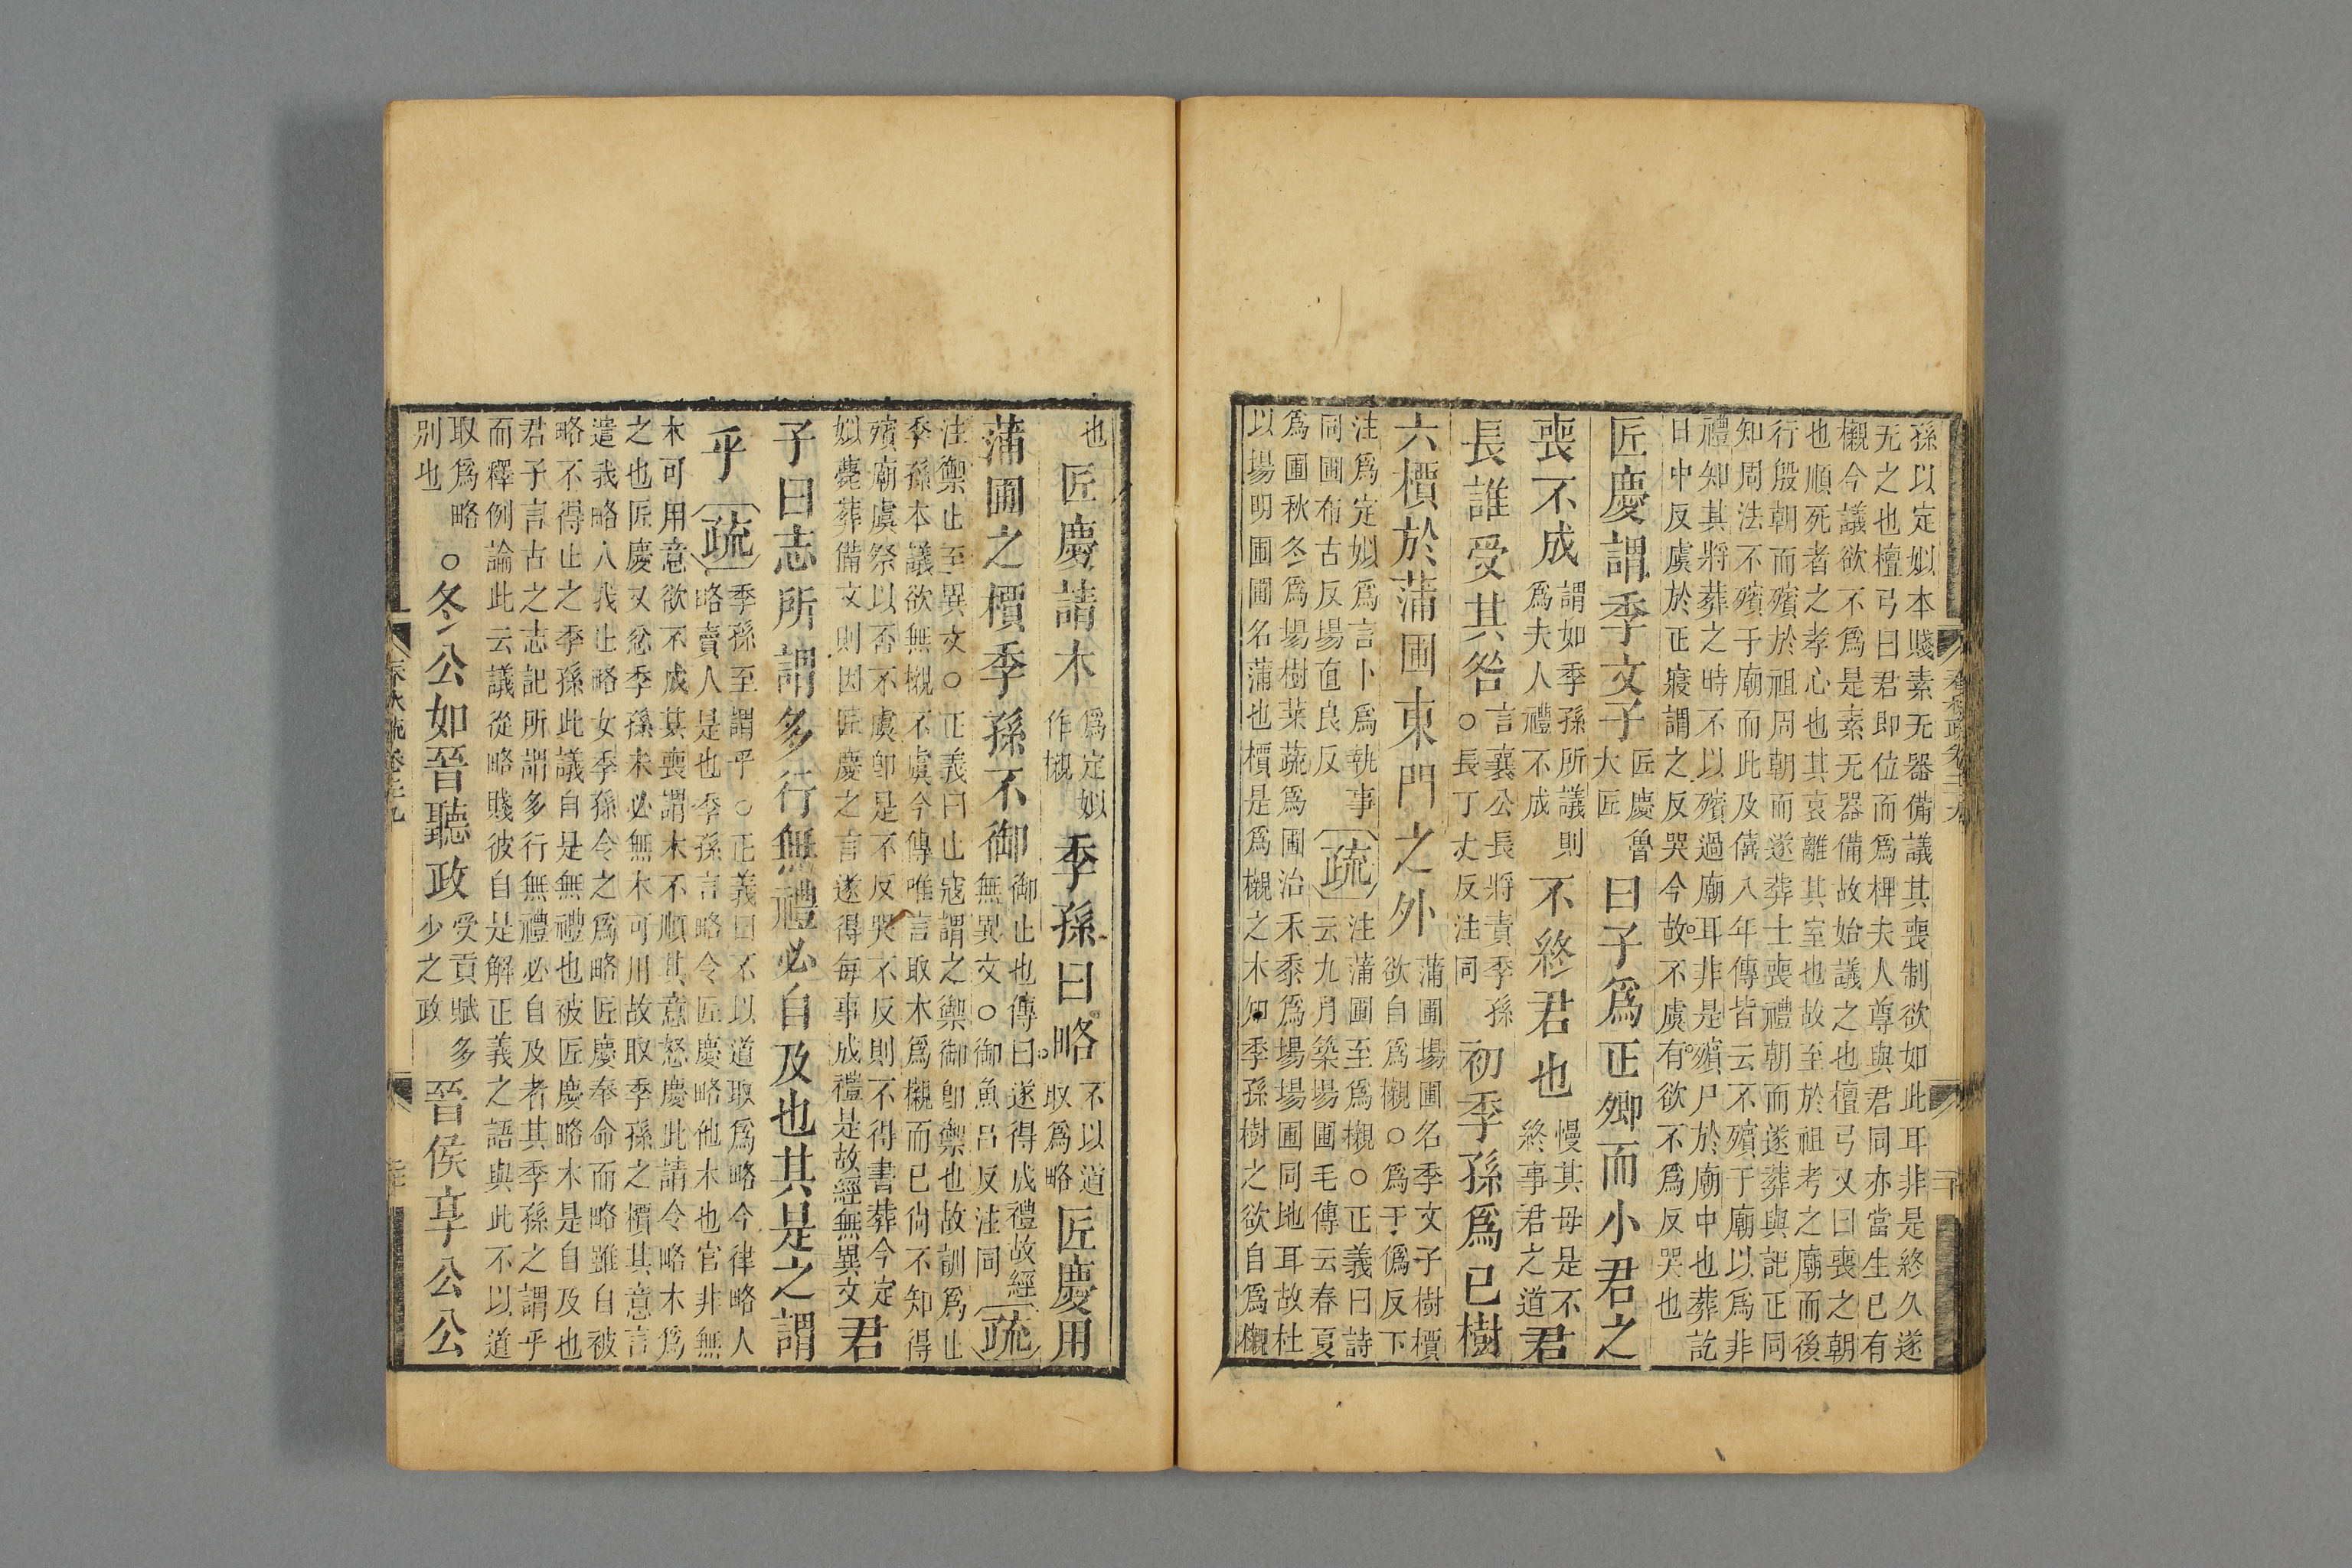 孫以定姒本賤素无器備議其喪制欲如此耳非是終久遂
无之也檀弓曰君即位而爲椑夫人尊與君同亦當生已有
櫬今議欲不爲是素无器備故始議之也檀弓又曰喪之朝
也順死者之孝心也其哀離其室也故至於祖考之廟而後
行殷朝而殯於祖周朝而遂葬士喪禮朝而遂葬與記正同
知周法不殯于廟而此及僖八年傳皆云不殯于廟以爲非
禮知其將葬之時不以殯過廟耳非是殯尸於廟中也葬訖
日中反虞於正寢謂之反哭今故不虞有欲不爲反哭也
匠慶謂季文子
匠慶魯
大匠
曰子爲正卿而小君之
喪不成
謂如季孫所議則
爲夫人禮不成
不終君也
慢其母是不
終事君之道
君
長誰受其咎
言襄公長將責季孫
○長丁丈反注同
初季孫爲已樹
六檟於蒲圃東門之外
蒲圃場圃名季文子樹檟
欲自爲櫬○爲于僞反下
注爲定姒爲言卜爲執事
同圃布古反場直良反
疏
注蒲圃至爲櫬○正義曰詩
云九月築場圃毛傳云春夏
爲圃秋冬爲場樹菜蔬爲圃治禾黍爲場場圃同地耳故杜
以場明圃圃名蒲也檟是爲櫬之木知季孫樹之欲自爲櫬
也
匠慶請木
爲定姒
作櫬
季孫曰略
不以道
取爲略
匠慶用
蒲圃之檟季孫不御
御止也傳曰遂得成禮故經
無異文○御魚呂反注同
疏
注禦止至異文○正義曰止寇謂之禦御即禦也故訓爲止
季孫本議欲無櫬不虞今傳唯言取木爲櫬而已尚不知得
殯廟虞祭以否不虞即是不反哭不反則不得書葬今定
姒薨葬備文則因匠慶之言遂得每事成禮是故經無異文
君
子曰志所謂多行無禮必自及也其是之謂
乎
疏
季孫至謂乎○正義曰不以道取爲略今律略人
略賣人是也季孫言略令匠慶略他木也官非無
木可用意欲不成其喪謂木不順其意怒慶此請令略木爲
之也匠慶又忿季孫未必無木可用故取季孫之檟其意言
遣我略人我止略女季孫令之爲略匠慶奉命而略雖自被
略不得止之季孫此議自是無禮也被匠慶略木是自及也
君子言古之志記所謂多行無禮必自及者其季孫之謂乎
而釋例論此云議從略賤彼自是解正義之語與此不以道
取爲略
別也
○冬公如晉聽政
受貢賦多
少之政
晉侯享公公